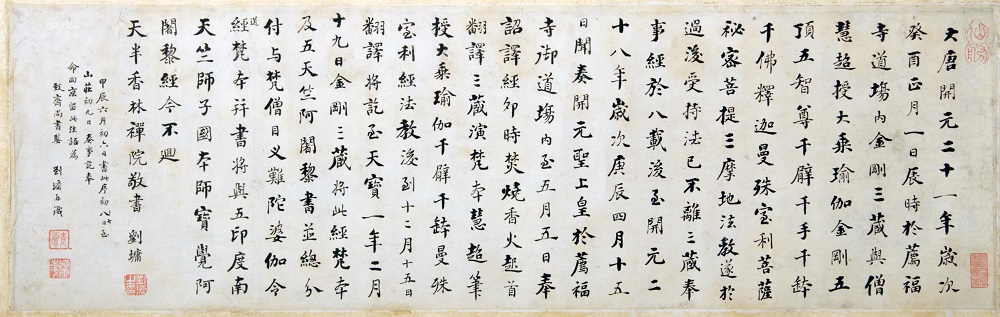 大唐開元二十一年歲次
癸酉正月一日辰時於薦福
寺道場內金剛三藏與僧
慧超授大乘瑜伽金剛五
頂五智尊千臂千手千鉢
千佛釋迦曼殊室利菩薩
祕密菩提三摩地法教遂於
過後受持法已不離三藏奉
事經於八載後至開元二
十八年歲次庚辰四月十五
日聞奏開元聖上皇於薦福
寺御道場內至五月五日奉
詔譯經卯時焚燒香火起首
翻譯三藏演梵本慧超筆
授大乘瑜伽千臂千鉢曼殊
室利經法教後到十二月十五日
翻譯將訖至天寶一年二月
十九日金剛三藏將此經梵本
及五天竺阿闍黎書並總分
付与梵僧目叉難陀婆伽令
送經梵本并書將與五印度南
天竺師子國本師寶覺阿
闍黎經今不迴
天半香林禪院敬書 劉墉
甲辰六月初六日書此序初八日
山莊初九日奏事訖奉
命回京留此法語為
致齋尚書鑒 劉墉又識